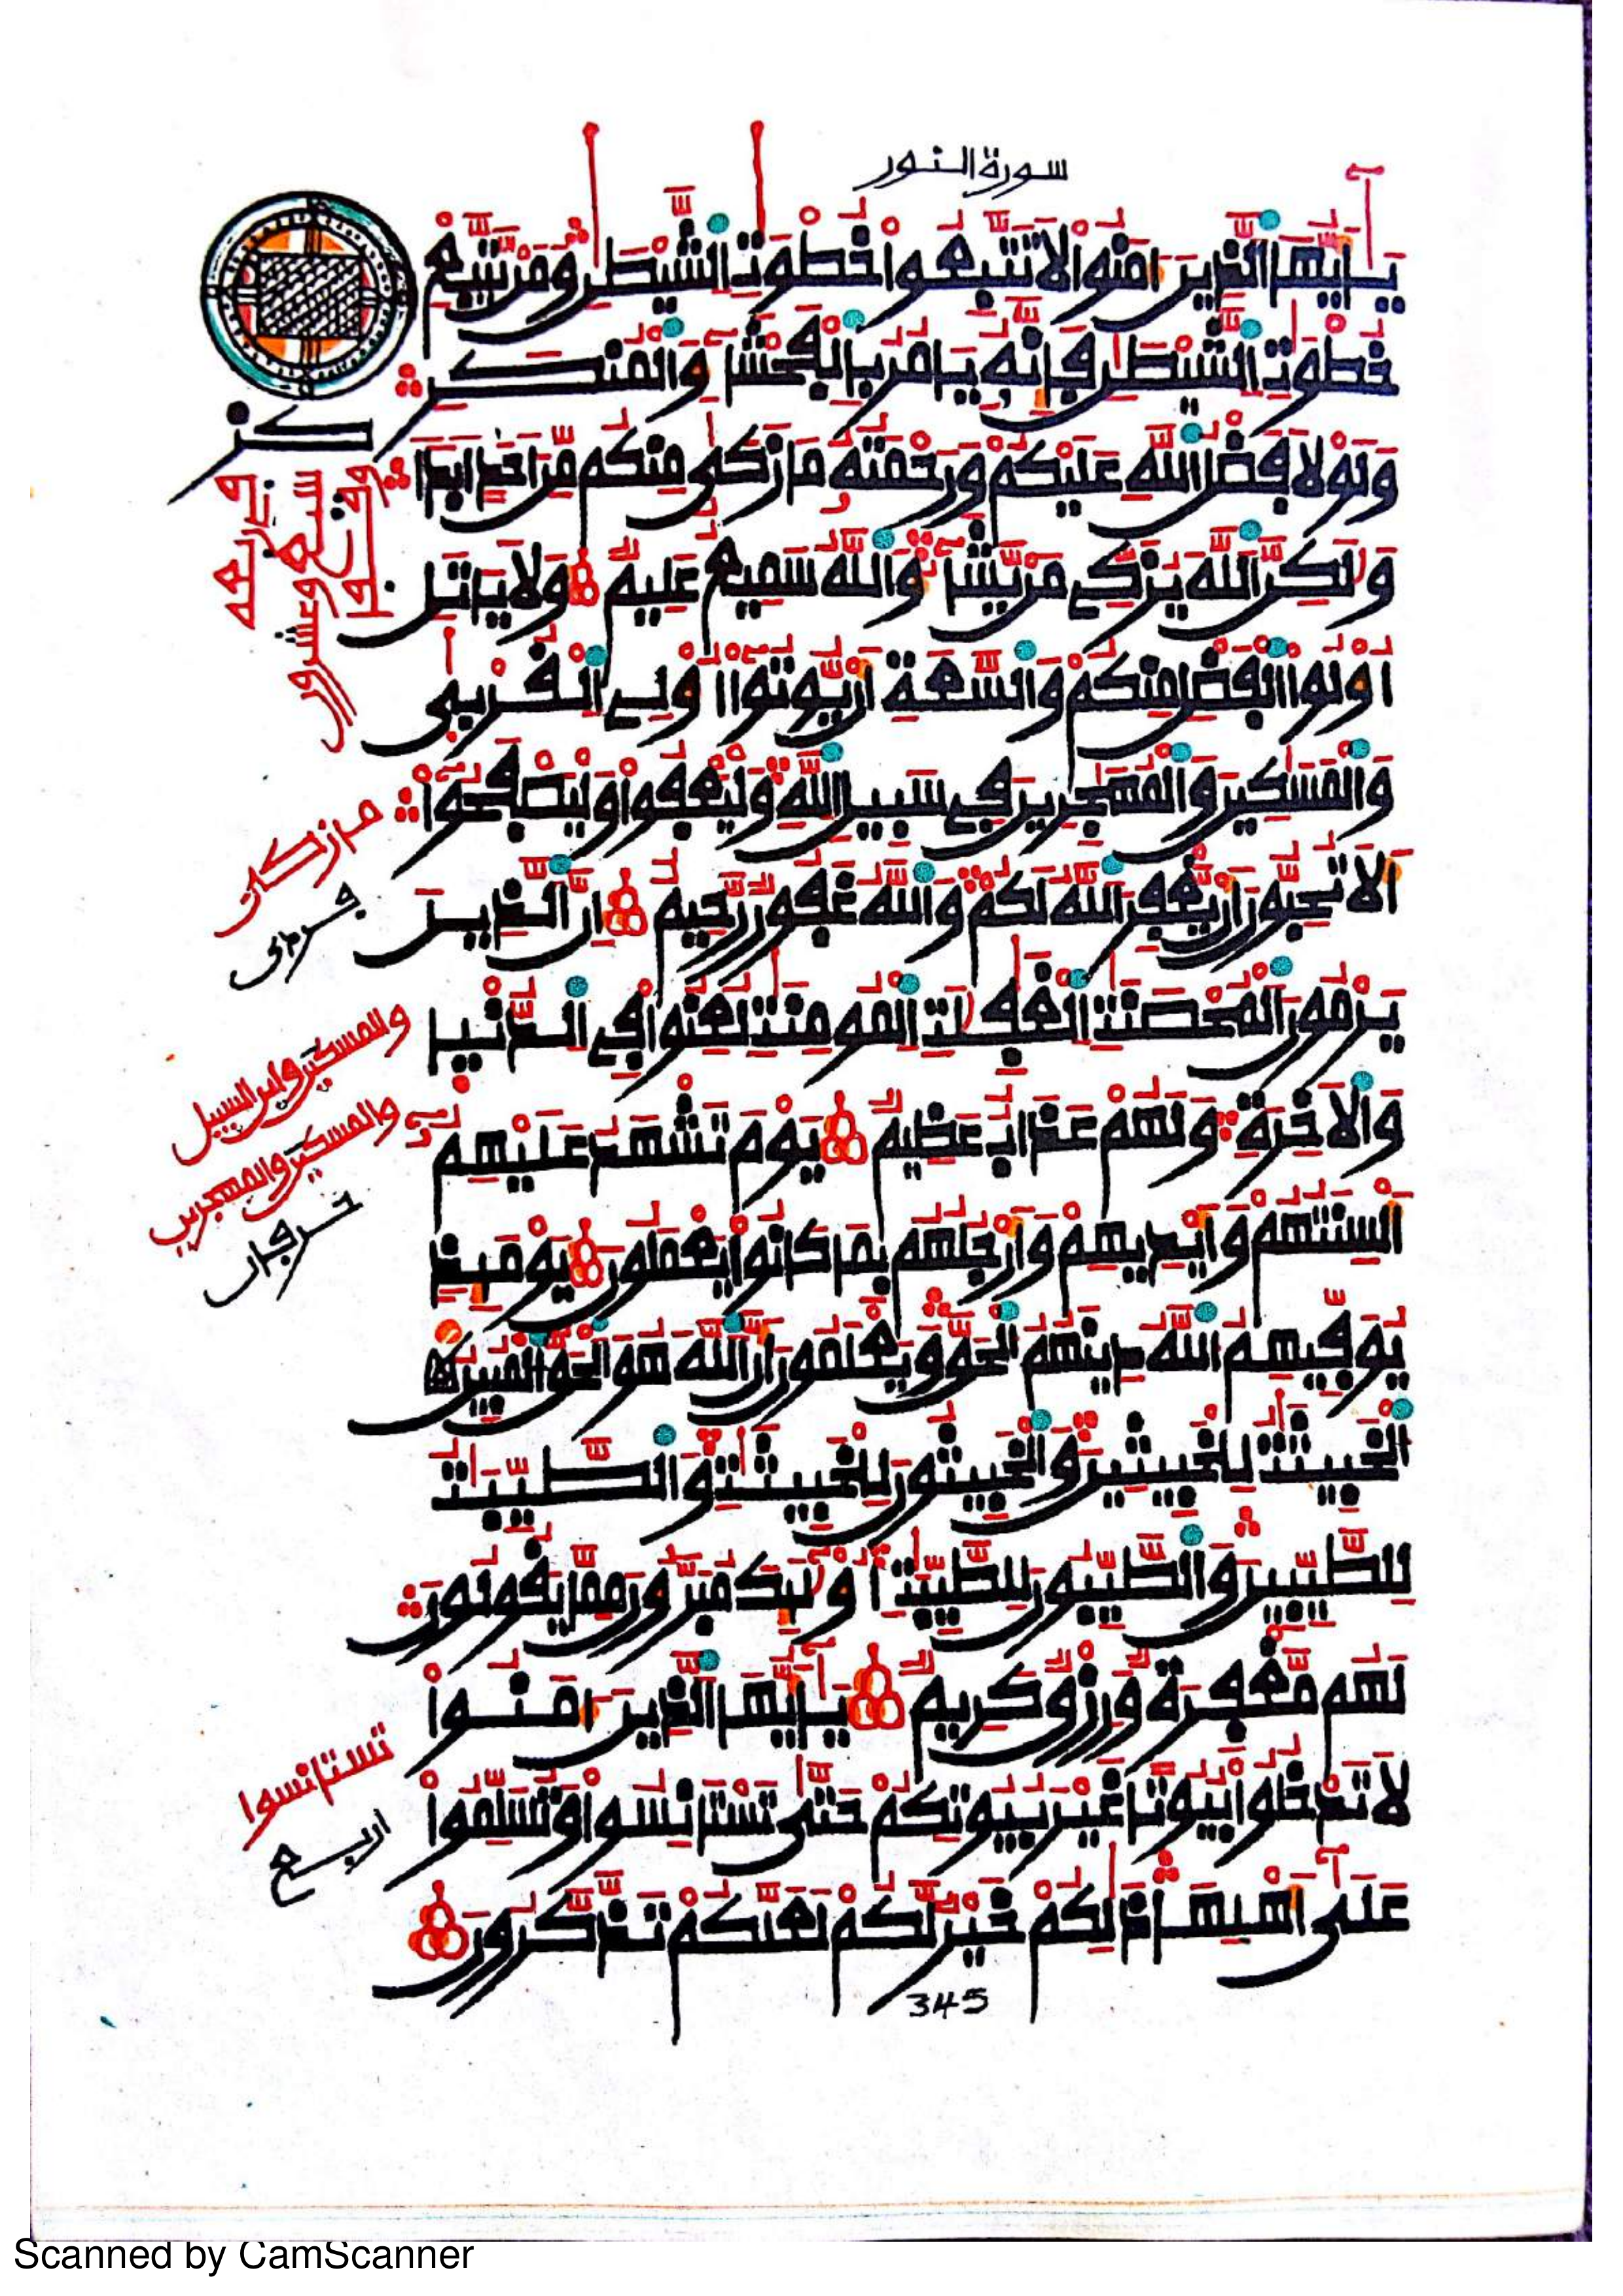 سورة النور
يَٰأَيُّهَا الذِينَ ءَامَنُوا لَا تَتَّبِعُوا خُطْوَٰتِ الشَّيْطَٰنِ وَمَنْ يَّتَّبِعْ
خُطْوَٰتِ الشَّيْطَٰنِ فَإِنَّهُ يَامُرُ بِالْفَحْشَاءِ وَالْمُنكَرِ
وَلَوْلَا فَضْلُ اللَّهِ عَلَيْكُمْ وَرَحْمَتُهُ مَا زَكَىٰ مِنكُم مِّنْ أَحَدٍ أَبَدًا
وَلَٰكِنَّ اللَّهَ يُزَكِّي مَنْ يَّشَاءُ وَاللَّهُ سَمِيعٌ عَلِيمٌ وَلَا يَاتَلِ
أُوْلُوا الْفَضْلِ مِنكُمْ وَالسَّعَةِ أَنْ يُّوتُوا أُوْلِي الْقُرْبَىٰ
وَالْمَسَٰكِينَ وَالْمُهَٰجِرِينَ فِي سَبِيلِ اللَّهِ وَلْيَعْفُوا وَلْيَصْفَحُوا
أَلَا تُحِبُّونَ أَنْ يَّغْفِرَ اللَّهُ لَكُمْ وَاللَّهُ غَفُورٌ رَّحِيمٌ إِنَّ الذِينَ
يَرْمُونَ الْمُحْصَنَٰتِ الْغَٰفِلَٰتِ الْمُومِنَٰتِ لُعِنُوا فِي الدُّنْيَا
وَالْأَخِرَةِ وَلَهُمْ عَذَابٌ عَظِيمٌ يَوْمَ تَشْهَدُ عَلَيْهِمُ
أَلْسِنَتُهُمْ وَأَيْدِيهِمْ وَأَرْجُلُهُم بِمَا كَانُوا يَعْمَلُونَ يَوْمَئِذٍ
يُوَفِّيهِمُ اللَّهُ دِينَهُمُ الْحَقَّ وَيَعْلَمُونَ أَنَّ اللَّهَ هُوَ الْحَقُّ الْمُبِينُ
الْخَبِيثَٰتُ لِلْخَبِيثِينَ وَالْخَبِيثُونَ لِلْخَبِيثَٰتِ وَالطَّيِّبَٰتُ
لِلطَّيِّبِينَ وَالطَّيِّبُونَ لِلطَّيِّبَٰتِ أُوْلَٰئِكَ مُبَرَّءُونَ مِمَّا يَقُولُونَ
لَهُم مَّغْفِرَةٌ وَرِزْقٌ كَرِيمٌ يَٰأَيُّهَا الذِينَ ءَامَنُوا
لَا تَدْخُلُوا بُيُوتًا غَيْرَ بُيُوتِكُمْ حَتَّىٰ تَسْتَانِسُوا وَتُسَلِّمُوا
عَلَىٰ أَهْلِهَا ذَٰلِكُمْ خَيْرٌ لَّكُمْ لَعَلَّكُمْ تَذَّكَّرُونَ
345
سبعة وعشرون
ما زكى
والمسكين وابن السبيل
والمسكين والمهجرين
حرفان
تستانسوا
اربع
Scanned by CamScanner